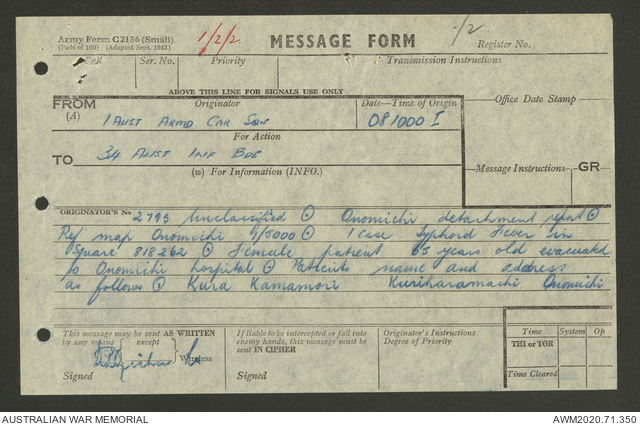 Army Form C2136 (Small)
(Pads of 100) (Adapted Sept. 1943)
1/2/2
MESSAGE FORM
-/2
Register No.
Call
Ser. No.
Priority
Transmission Instructions
ABOVE THIS LINE FOR SIGNALS USE ONLY
FROM
(A)
Originator
Date—Time of Origin
Office Date Stamp
1 Aust Armd Car Sqn
081000 I
For Action
TO
34 Aust Inf Bde
(w) For Information (INFO.)
Message Instructions
GR
ORIGINATOR'S No 2795 Unclassified ⊙ Onomichi detachment report ⊙
Ref map Onomichi 1/5000 ⊙ 1 case Typhoid Fever in
Square 818262 ⊙ Female patient 65 years old evacuated
to Onomichi hospital ⊙ Patients name and address
as follows ⊙ Kura Kamamori Kuriharamachi Onomichi
This message may be sent AS WRITTEN
by any means { except } Wireless
Signed
If liable to be intercepted or fall into
enemy hands, this message must be
sent IN CIPHER
Signed
Originator's Instructions
Degree of Priority
Time
System
Op
THI or TOR
Time Cleared
AUSTRALIAN WAR MEMORIAL
AWM2020.71.350